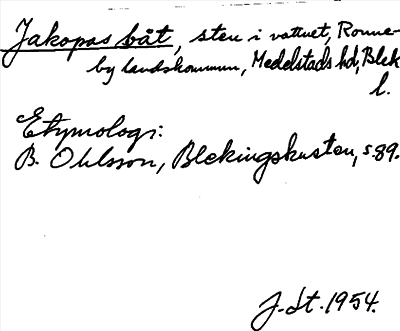 Jakopas båt, sten i vattnet, Ronne-
by landskommun, Medelstads hd, Blek
l.
Etymologi:
B. Ohlsson, Blekingskusten, s. 89.
J. St. 1954.